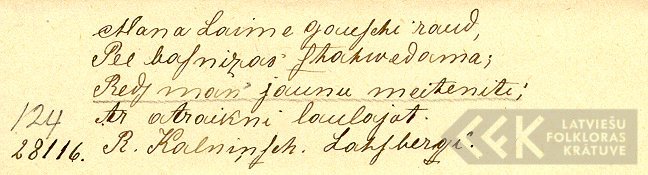 Mana Laime gauschi raud,
Pee basnizas stahwedama;
Reds man jaunu meiteniti,
124 Ar atraikni laulajot.
28116. R. Kalninsch. Lahsbergi.
LATVIEŠU
FOLKLORAS
KRĀTUVE
LFK